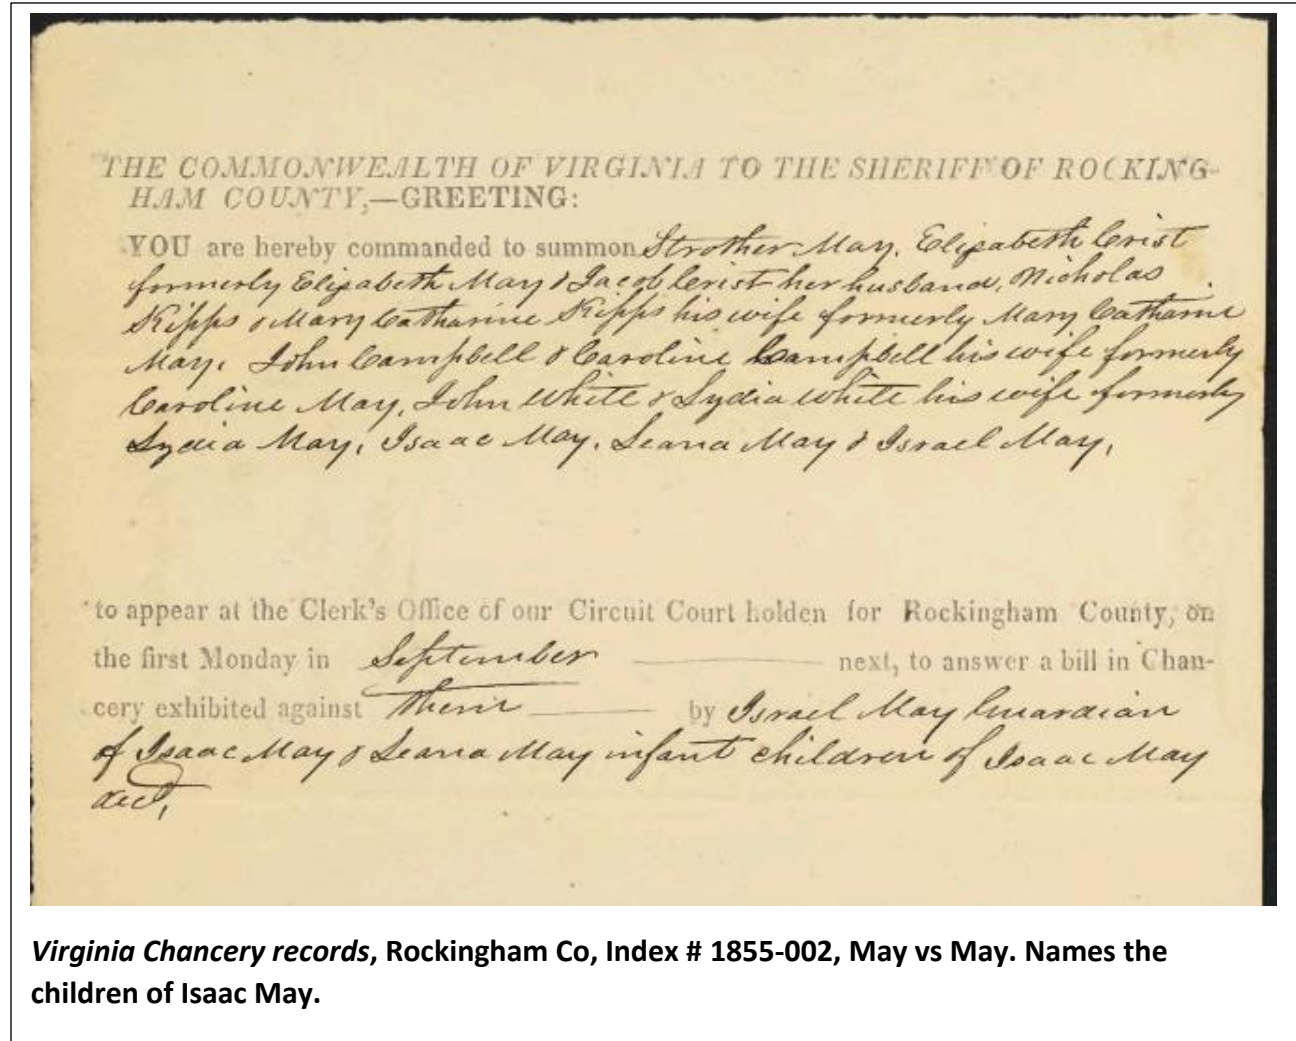 THE COMMONWEALTH OF VIRGINIA TO THE SHERIFF OF ROCKING-
HAM COUNTY,—GREETING:
YOU are hereby commanded to summon Strother May, Elizabeth Crist
formerly Elizabeth May & Jacob Crist her husband, Nicholas
Kipps & Mary Catharine Kipps his wife formerly Mary Catharine
May, John Campbell & Caroline Campbell his wife formerly
Caroline May, John White & Lydia White his wife formerly
Lydia May, Isaac May, Leana May & Israel May,
to appear at the Clerk's Office of our Circuit Court holden for Rockingham County, on
the first Monday in September next, to answer a bill in Chan-
cery exhibited against them by Israel May Guardian
of Isaac May & Leana May infant children of Isaac May
decd,
Virginia Chancery records, Rockingham Co, Index # 1855-002, May vs May. Names the
children of Isaac May.